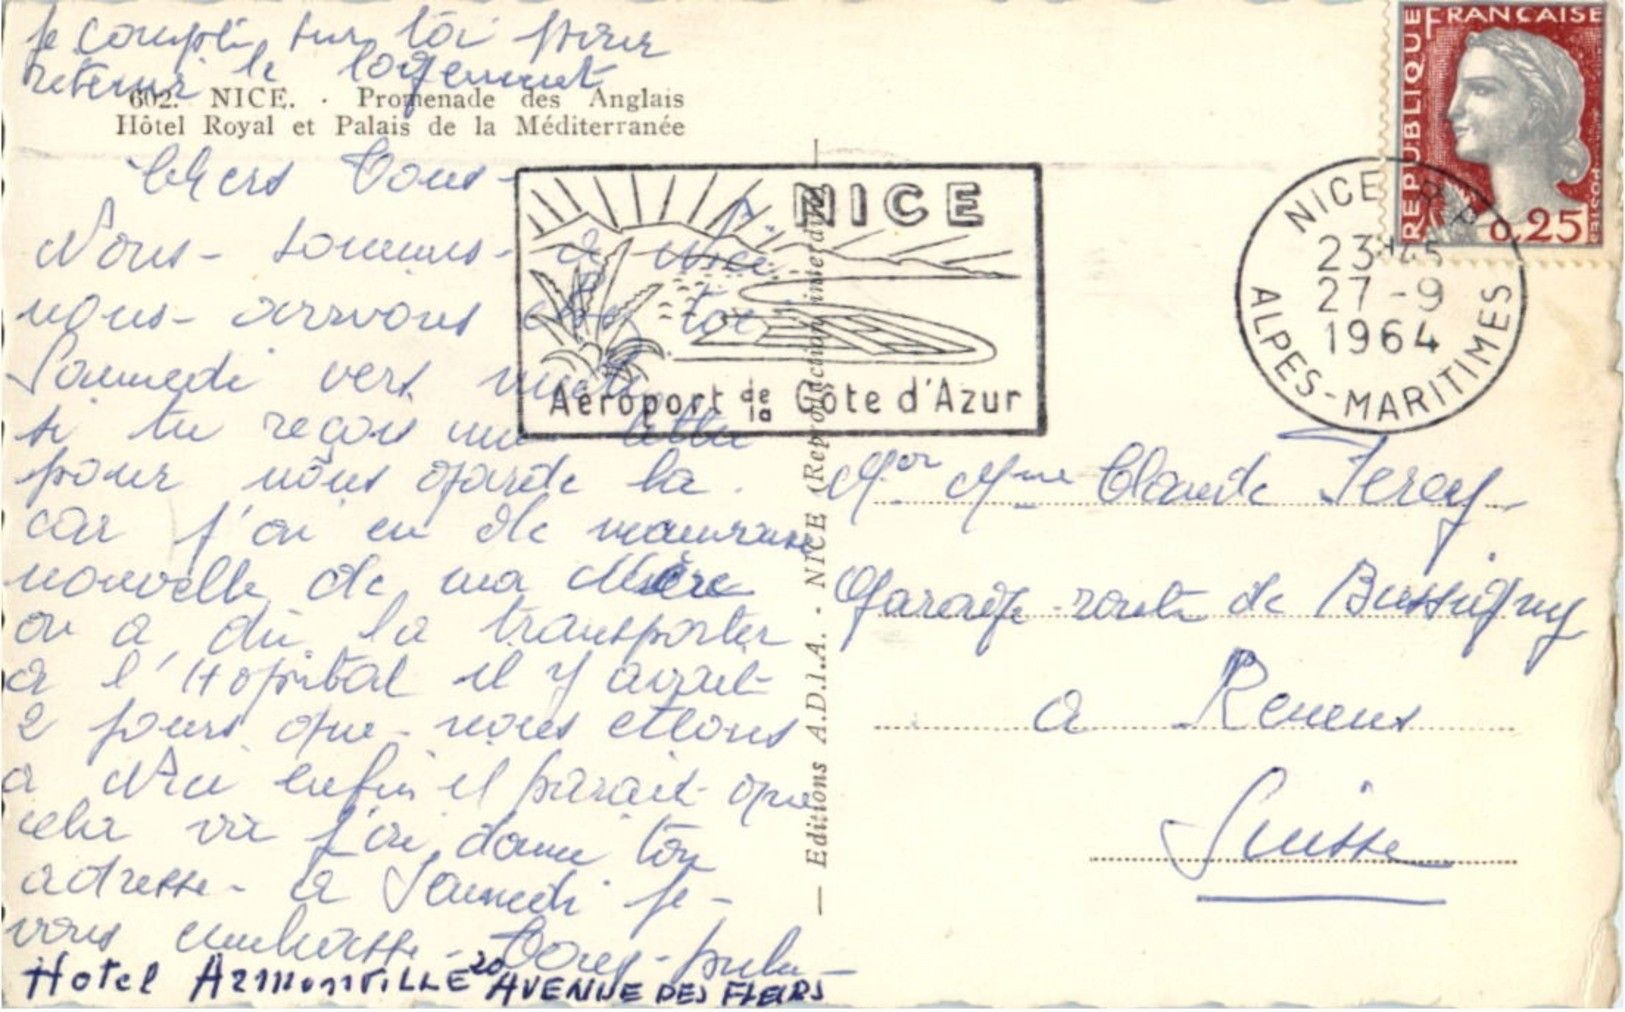 Je compte sur toi pour
retenir le logement
602. NICE. · Promenade des Anglais
Hôtel Royal et Palais de la Méditerranée
Chers Tous -
Nous - sommes - à Nice
nous - arrivons chez toi
Samedi vers minuit
si tu reçois une lettre
pour nous garde la.
car j'ai eu de mauvaise
nouvelle de ma Mère
on a du la transporter
a l'Hopital il y avait
2 jours que - nous etions
a Nice enfin il parait que
cela va j'ai donne ton
adresse - a Samedi je -
vous embrasse -
Hotel ARMENONVILLE 20 AVENUE DES FLEURS
NICE
Aéroport de la Côte d'Azur
— Editions A.D.I.A. - NICE (Reproduction interdite)
REPUBLIQUE FRANÇAISE
0,25
POSTES
NICE R.P.
23H45
27-9
1964
ALPES-MARITIMES
Mr Mme Claude Ferey
Garage - route de Bussigny
a Renens
Suisse